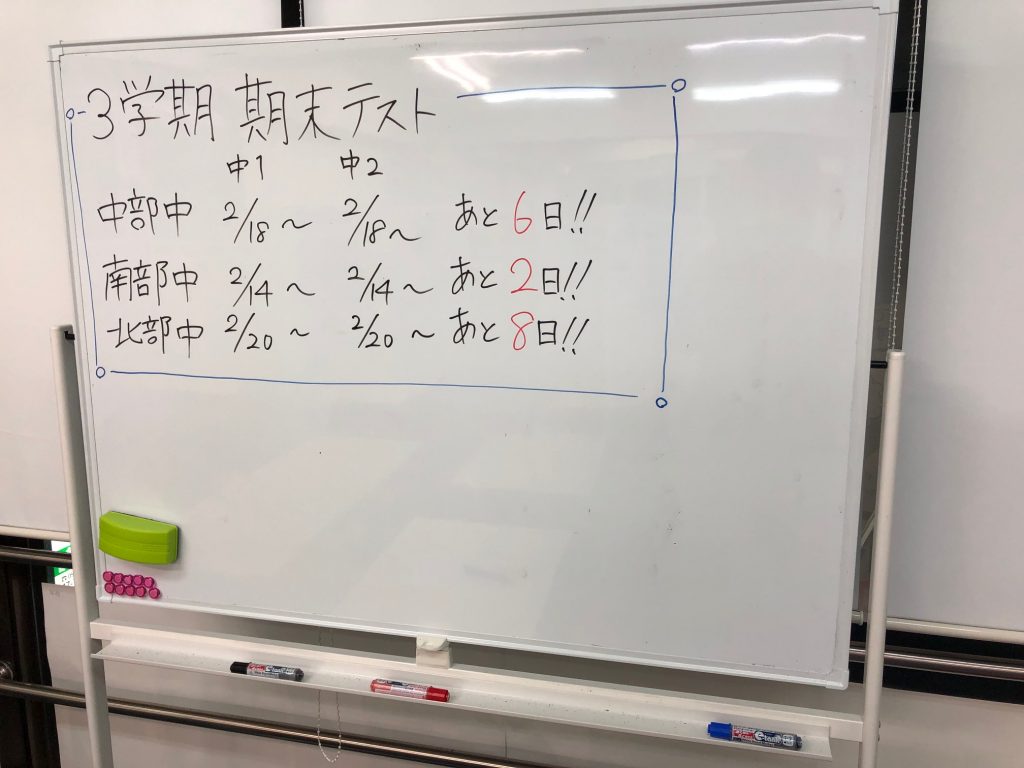 3学期 期末テスト
中1 中2
中部中 2/18〜 2/18〜 あと6日!!
南部中 2/14〜 2/14〜 あと2日!!
北部中 2/20〜 2/20〜 あと8日!!